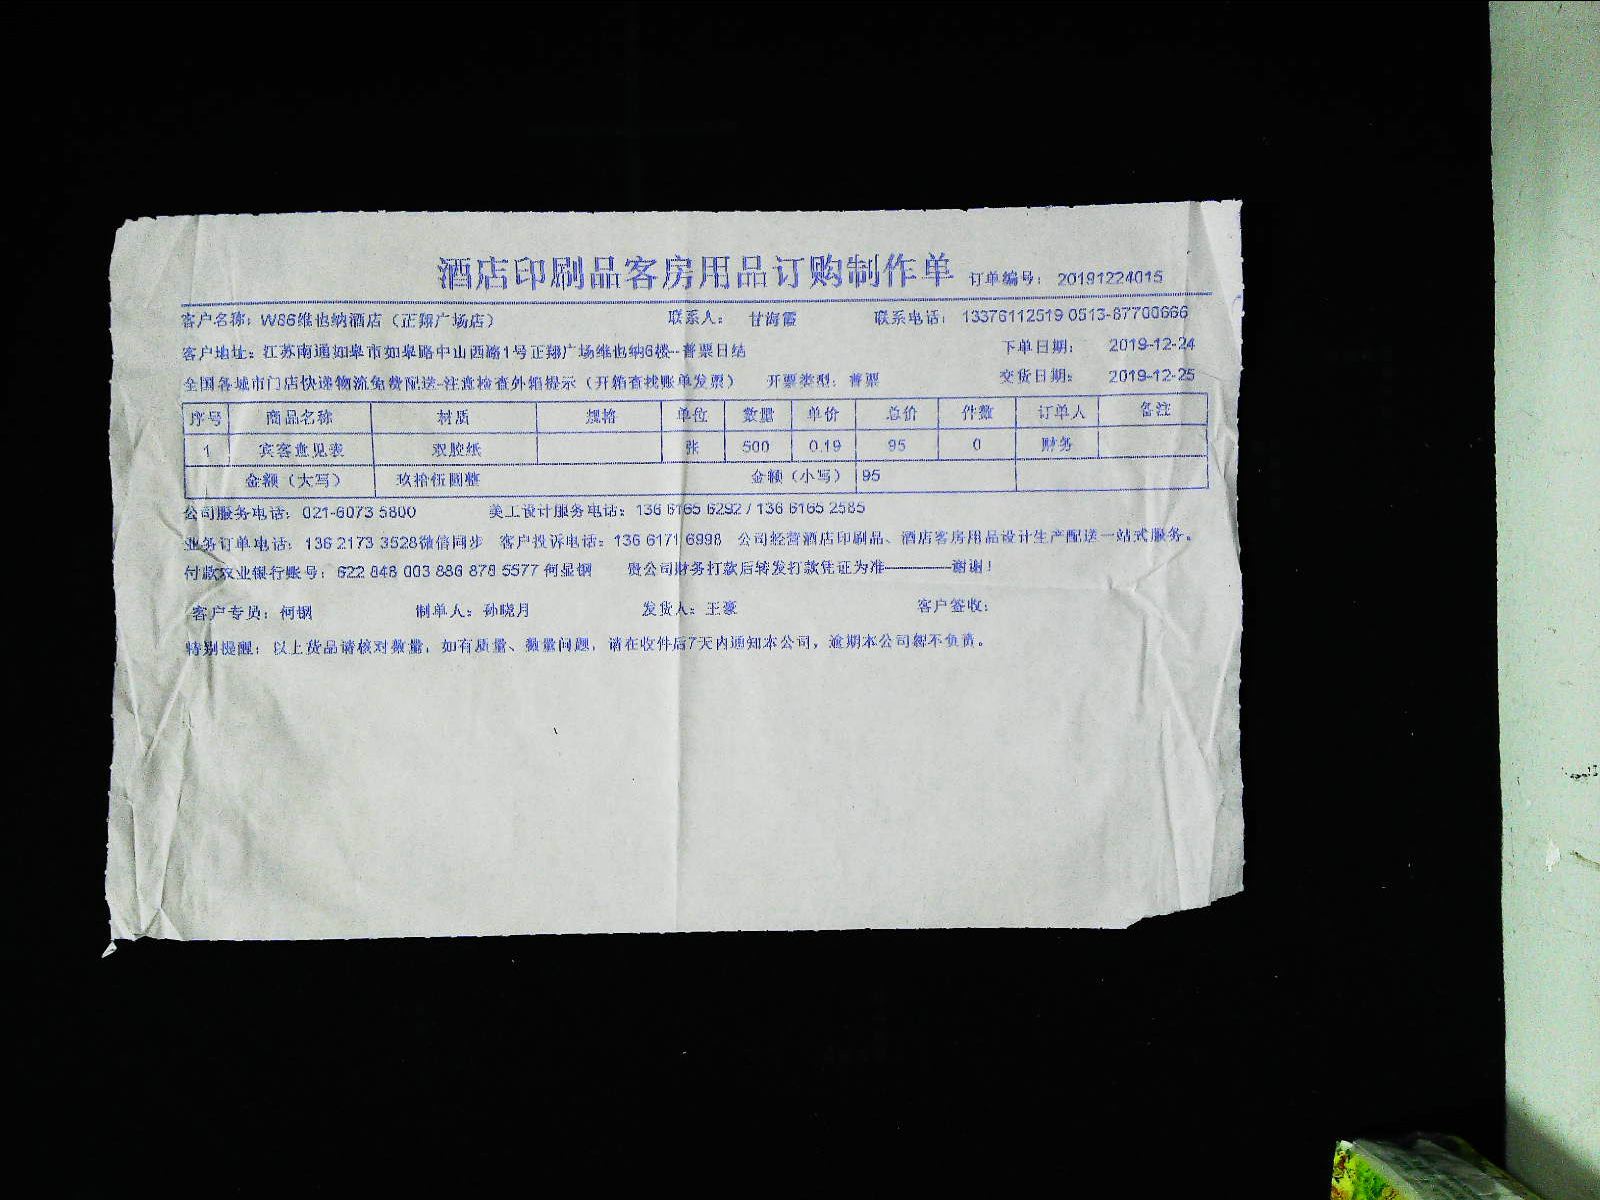 酒店印刷品客房用品订购制作单 订单编号：20191224015
客户名称：W86维也纳酒店（正翔广场店） 联系人：甘海霞 联系电话：13376112519 0513-87700666
客户地址：江苏南通如皋市如皋路中山西路1号正翔广场维也纳6楼--普票日结 下单日期：2019-12-24
全国各城市门店快递物流免费配送-注意检查外箱提示（开箱查找账单发票） 开票类型：普票 交货日期：2019-12-25
序号 商品名称 材质 规格 单位 数量 单价 总价 件数 订单人 备注
1 宾客意见表 双胶纸 张 500 0.19 95 0 财务
金额（大写） 玖拾伍圆整 金额（小写） 95
公司服务电话：021-6073 5800 美工设计服务电话：136 6165 6292 / 136 6165 2585
业务订单电话：136 2173 3528微信同步 客户投诉电话：136 6171 6998 公司经营酒店印刷品、酒店客房用品设计生产配送一站式服务。
付款农业银行账号：622 848 003 886 878 5577 何显钢 贵公司财务打款后转发打款凭证为准————谢谢！
客户专员：何钢 制单人：孙晓月 发货人：王豪 客户签收：
特别提醒：以上货品请核对数量，如有质量、数量问题，请在收件后7天内通知本公司，逾期本公司概不负责。